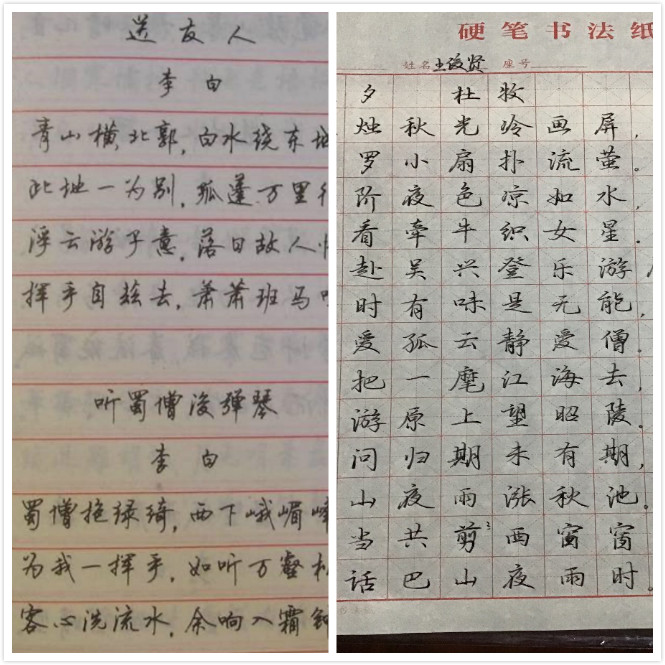 送友人
李白
青山横北郭,白水绕东城
此地一为别,孤蓬万里
浮云游子意,落日故人
挥手自兹去,萧萧班马
听蜀僧浚弹琴
李白
蜀僧抱绿绮,西下峨嵋峰
为我一挥手,如听万壑
客心洗流水,余响入霜钟
硬笔书法纸
姓名 座号
夕 杜牧
烛秋光冷画屏,
罗小扇扑流萤。
阶夜色凉如水,
看牵牛织女星。
赴吴兴登乐游
时有味是无能,
爱孤云静爱僧。
把一麾江海去,
游原上望昭陵。
问归期未有期,
山夜雨涨秋池。
当共剪西窗窗
话巴山夜雨时。